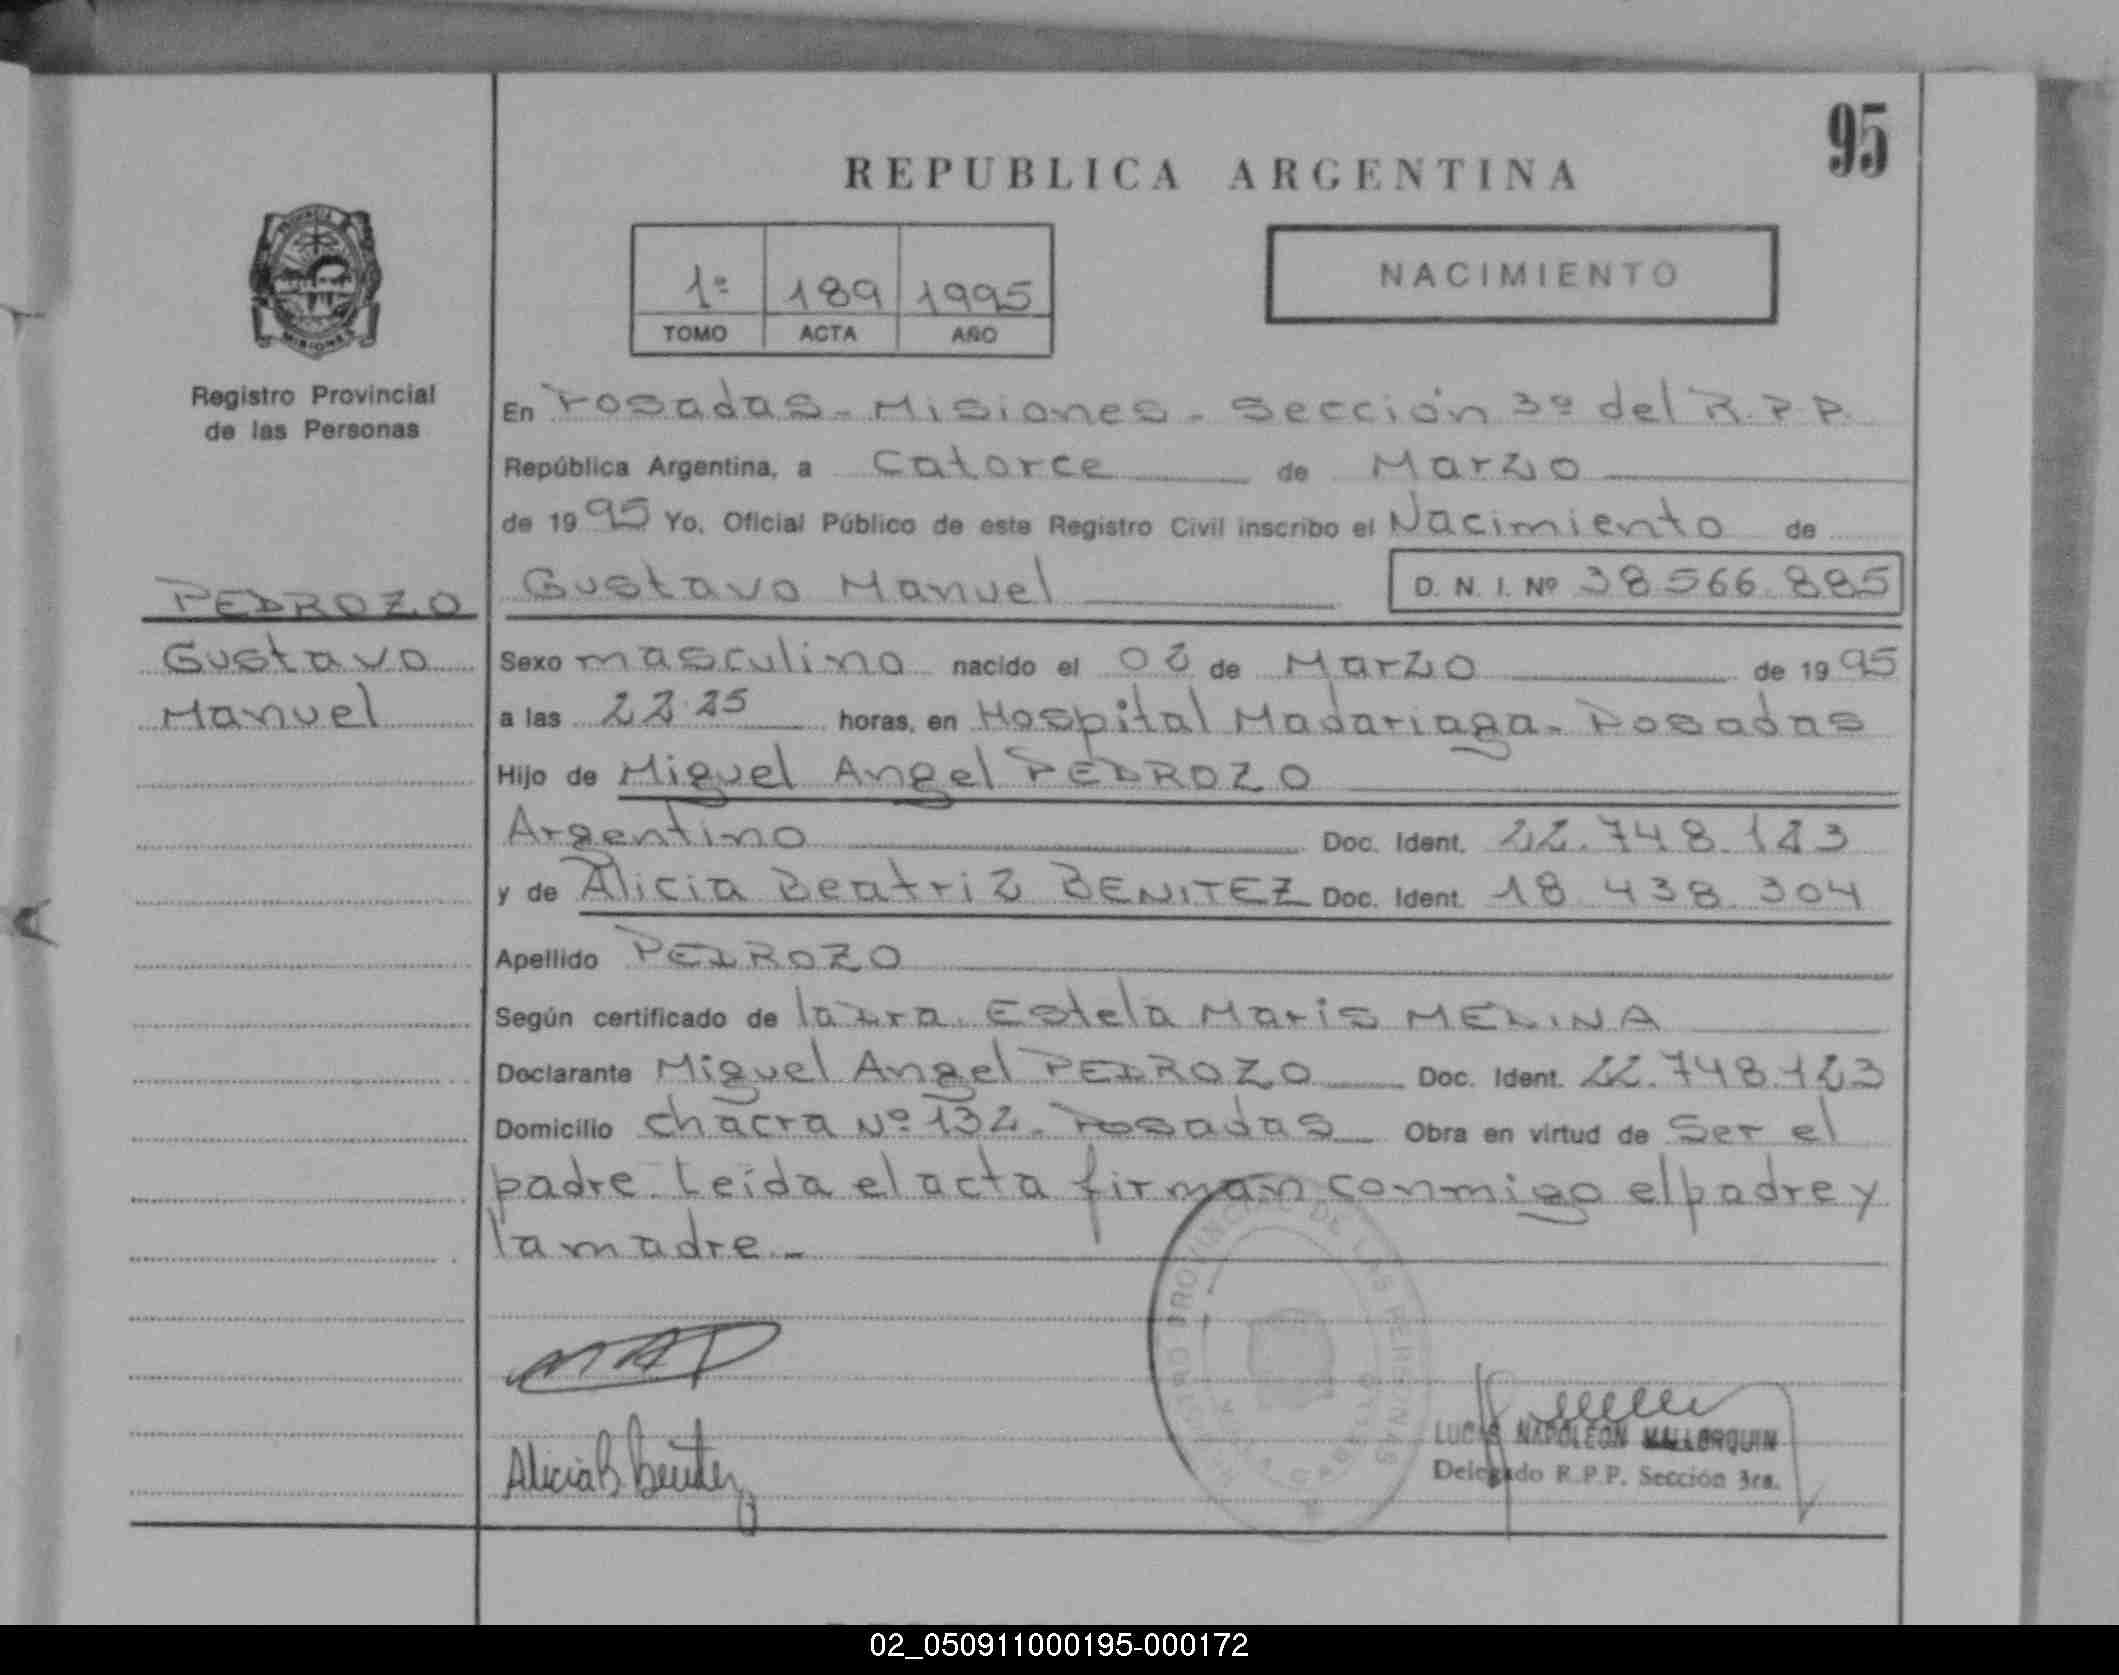 95
REPUBLICA ARGENTINA
1º 189 1995
TOMO ACTA AÑO
NACIMIENTO
MISIONES
Registro Provincial
de las Personas
En Posadas - Misiones - Sección 3º del R.P.P.
República Argentina, a Catorce de Marzo
de 1995 Yo, Oficial Público de este Registro Civil inscribo el Nacimiento de
Gustavo Manuel D. N. I. Nº 38566.885
PEDROZO
Gustavo
Manuel
Sexo masculino nacido el 02 de Marzo de 1995
a las 22.25 horas, en Hospital Madariaga - Posadas
Hijo de Miguel Angel PEDROZO
Argentino Doc. Ident. 22.748.123
y de Alicia Beatriz BENITEZ Doc. Ident. 18 438 304
Apellido PEDROZO
Según certificado de la Dra. Estela Maris MEDINA
Declarante Miguel Angel PEDROZO Doc. Ident. 22.748.123
Domicilio Chacra Nº 132 - Posadas Obra en virtud de Ser el
padre. Leída el acta firman conmigo el padre y
la madre -
REGISTRO PROVINCIAL DE LAS PERSONAS
MAP
Alicia B. Benitez
LUCAS NAPOLEON MALLORQUIN
Delegado R.P.P. Sección 3ra.
02_050911000195-000172